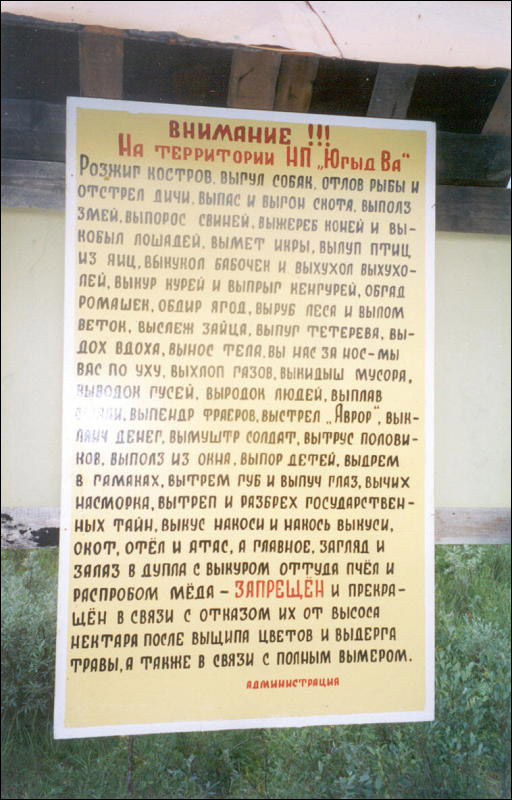 ВНИМАНИЕ !!!
НА ТЕРРИТОРИИ НП „ЮГЫД ВА"
РОЗЖИГ КОСТРОВ, ВЫГУЛ СОБАК, ОТЛОВ РЫБЫ И
ОТСТРЕЛ ДИЧИ, ВЫПАС И ВЫГОН СКОТА, ВЫПОЛЗ
ЗМЕЙ, ВЫПОРОС СВИНЕЙ, ВЫЖЕРЕБ КОНЕЙ И ВЫ-
КОБЫЛ ЛОШАДЕЙ, ВЫМЕТ ИКРЫ, ВЫЛУП ПТИЦ
ИЗ ЯИЦ, ВЫКУКОЛ БАБОЧЕК И ВЫХУХОЛ ВЫХУХО-
ЛЕЙ, ВЫКУР КУРЕЙ И ВЫПРЫГ КЕНГУРЕЙ, ОБГАД
РОМАШЕК, ОБДИР ЯГОД, ВЫРУБ ЛЕСА И ВЫЛОМ
ВЕТОК, ВЫСЛЕЖ ЗАЙЦА, ВЫПУГ ТЕТЕРЕВА, ВЫ-
ДОХ ВДОХА, ВЫНОС ТЕЛА, ВЫ НАС ЗА НОС-МЫ
ВАС ПО УХУ, ВЫХЛОП ГАЗОВ, ВЫКИДЫШ МУСОРА,
ВЫВОДОК ГУСЕЙ, ВЫРОДОК ЛЮДЕЙ, ВЫПЛАВ
ВЫПЕНДР ФРАЕРОВ, ВЫСТРЕЛ „АВРОР", ВЫК-
ЛЯНЧ ДЕНЕГ, ВЫМУШТР СОЛДАТ, ВЫТРУС ПОЛОВИ-
КОВ, ВЫПОЛЗ ИЗ ОКНА, ВЫПОР ДЕТЕЙ, ВЫДРЕМ
В ГАМАКАХ, ВЫТРЕМ ГУБ И ВЫПУЧ ГЛАЗ, ВЫЧИХ
НАСМОРКА, ВЫТРЕП И РАЗБРЕХ ГОСУДАРСТВЕН-
НЫХ ТАЙН, ВЫКУС НАКОСИ И НАКОСЬ ВЫКУСИ,
ОКОТ, ОТЁЛ И АТАС, А ГЛАВНОЕ, ЗАГЛЯД И
ЗАЛАЗ В ДУПЛА С ВЫКУРОМ ОТТУДА ПЧЁЛ И
РАСПРОБОМ МЁДА – ЗАПРЕЩЁН И ПРЕКРА-
ЩЁН В СВЯЗИ С ОТКАЗОМ ИХ ОТ ВЫСОСА
НЕКТАРА ПОСЛЕ ВЫЩИПА ЦВЕТОВ И ВЫДЕРГА
ТРАВЫ, А ТАКЖЕ В СВЯЗИ С ПОЛНЫМ ВЫМЕРОМ.
АДМИНИСТРАЦИЯ